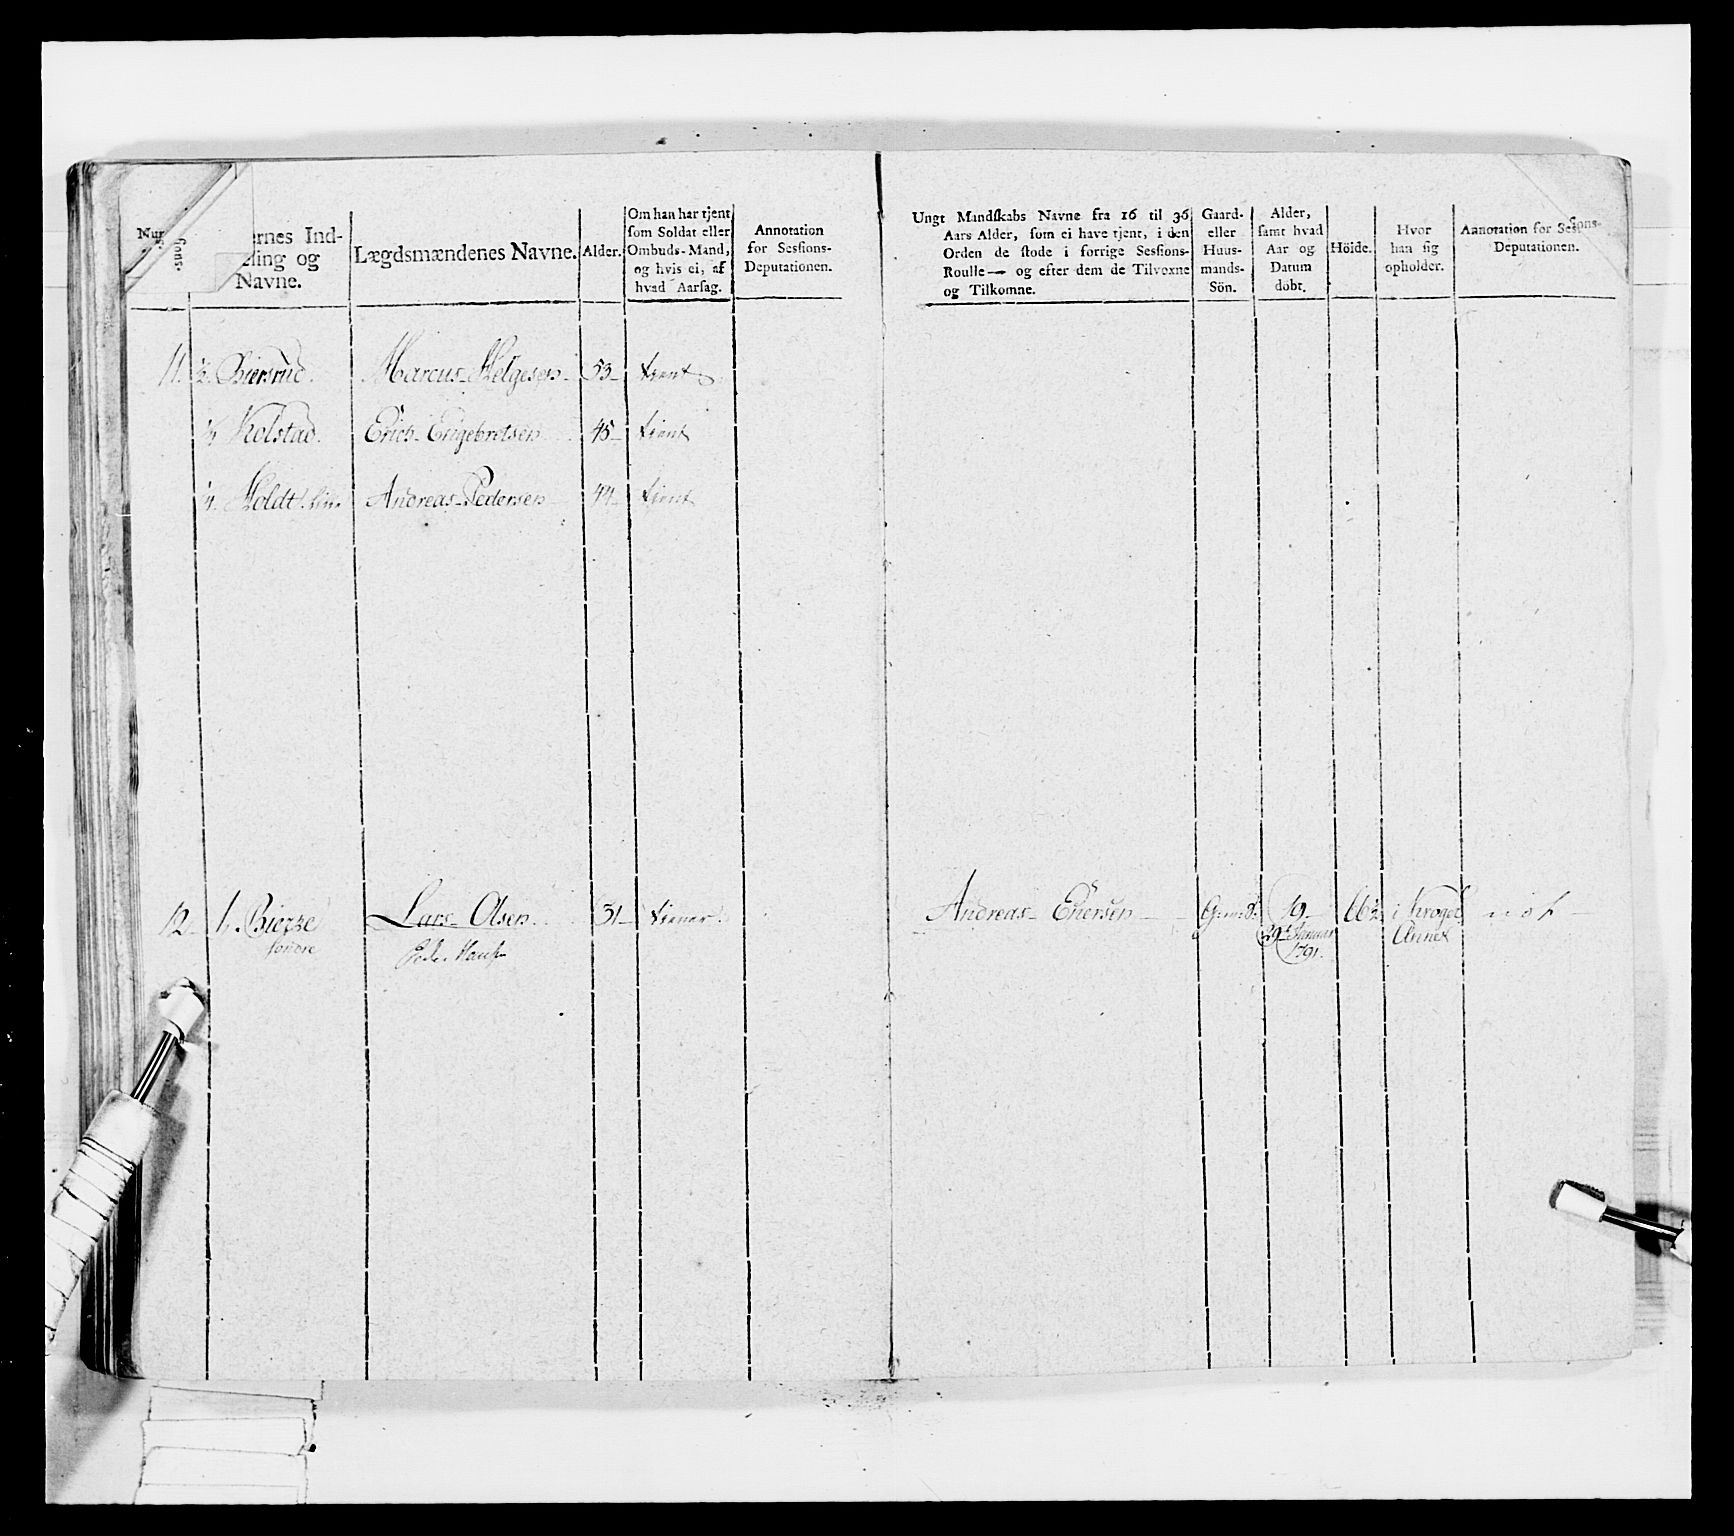 ernes Ind-
ling og
Navne.
Lægdsmændenes Navne.
Alder.
Om han har tjent
som Soldat eller
Ombuds-Mand,
og hvis ei, af
hvad Aarsag.
Annotation
for Sessions-
Deputationen.
Ungt Mandskabs Navne fra 16 til 36
Aars Alder, som ei have tjent, i den
Orden de stode i forrige Sessions-
Roulle — og efter dem de Tilvoxne
og Tilkomne.
Gaard-
eller
Huus-
mands-
Sön.
Alder,
samt hvad
Aar og
Datum
döbt.
Höide.
Hvor
han sig
opholder.
Annotation for Sessions-
Deputationen.
11. ½. Biersrud. Marcus Helgesen 53 tient
Kolstad. Erich Engebretsen 45 tient
Holdt Andreas Pedersen 44 tient
12 1. Bierge Lars Olsen 31 tiener. Andreas Enersen 19 i
søndre Peder 29 Januar Annex
1791.